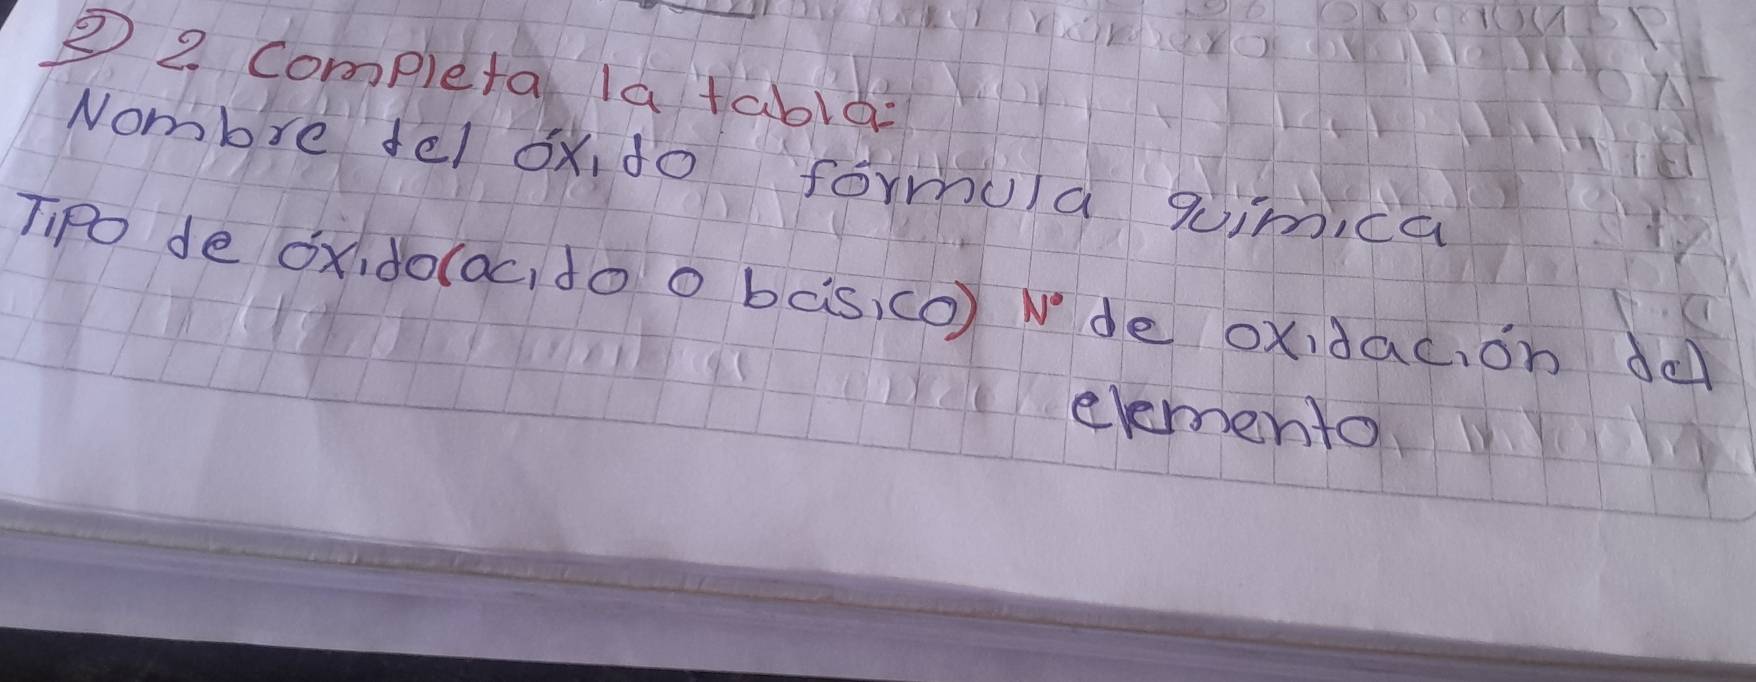 2) 2. Completa la tabla:
Nombre del óxido fórmula química
Tipo de óxido(acido o básico) N° de oxidación del
elemento